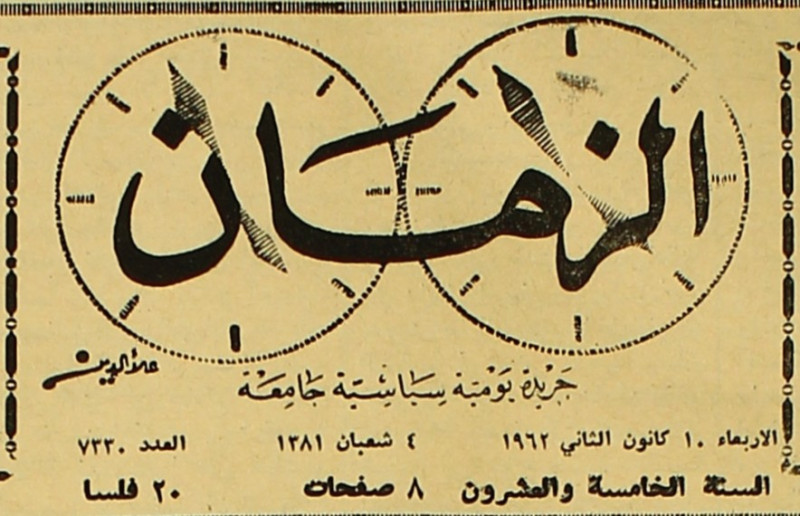 الزمان
علاءالدين
جريدة يومية سياسية جامعة
الاربعاء ١٠ كانون الثاني ١٩٦٢ ٤ شعبان ١٣٨١ العدد ٧٣٣٠
السنة الخامسة والعشرون ٨ صفحات ٢٠ فلسا